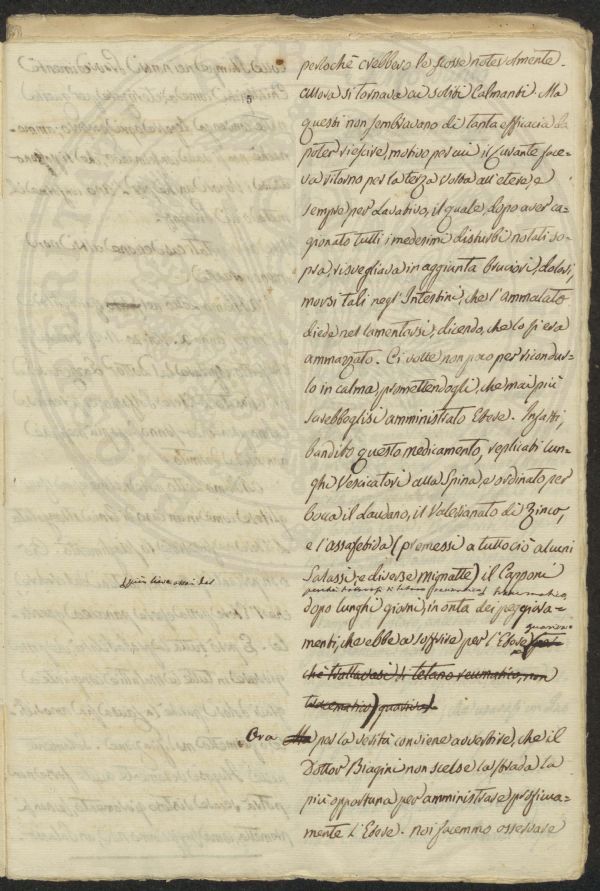 perlochè crebbero le scosse notevolmente.
allora si tornava ai soliti Calmanti. Ma
questi non sembravano di tanta efficacia da
poter riescire, motivo per cui il Curante face-
va ritorno per la terza volta all'etere, e
sempre per Lavativo, il quale, dopo aver ca-
gionato tutti i medesimi disturbi notati so-
pra, risvegliava in aggiunta bruciori, dolori,
morsi tali negl'Intestini, che l'ammalato
diede nel lamentarsi, dicendo, che lo si era
ammazzato. Ci volle non poco per ricondur-
lo in calma, promettendogli, che mai più
sarebbeglisi amministrato Etere. Infatti,
bandito questo medicamento, replicati lun-
ghi Vescicatori alla Spina, e ordinato per
bocca il laudano, il Valerianato di Zinco,
e l'assafetida (premessi a tutto ciò alcuni
Salassi, e diverse mignatte) il Capponi
perchè trattavasi di tetano reumatico, traumatico,
dopo lunghi giorni, in onta dei peggiora-
menti, che ebbe a soffrire per l'Etere (per
guarì
chè trattavasi di tetano reumatico, non
traumatico) guariva.
Ora Ma per la verità conviene avvertire, che il
Dottor Biagini non scelse la strada la
più opportuna per amministrare proficua-
mente l'Etere. Noi facemmo osservare